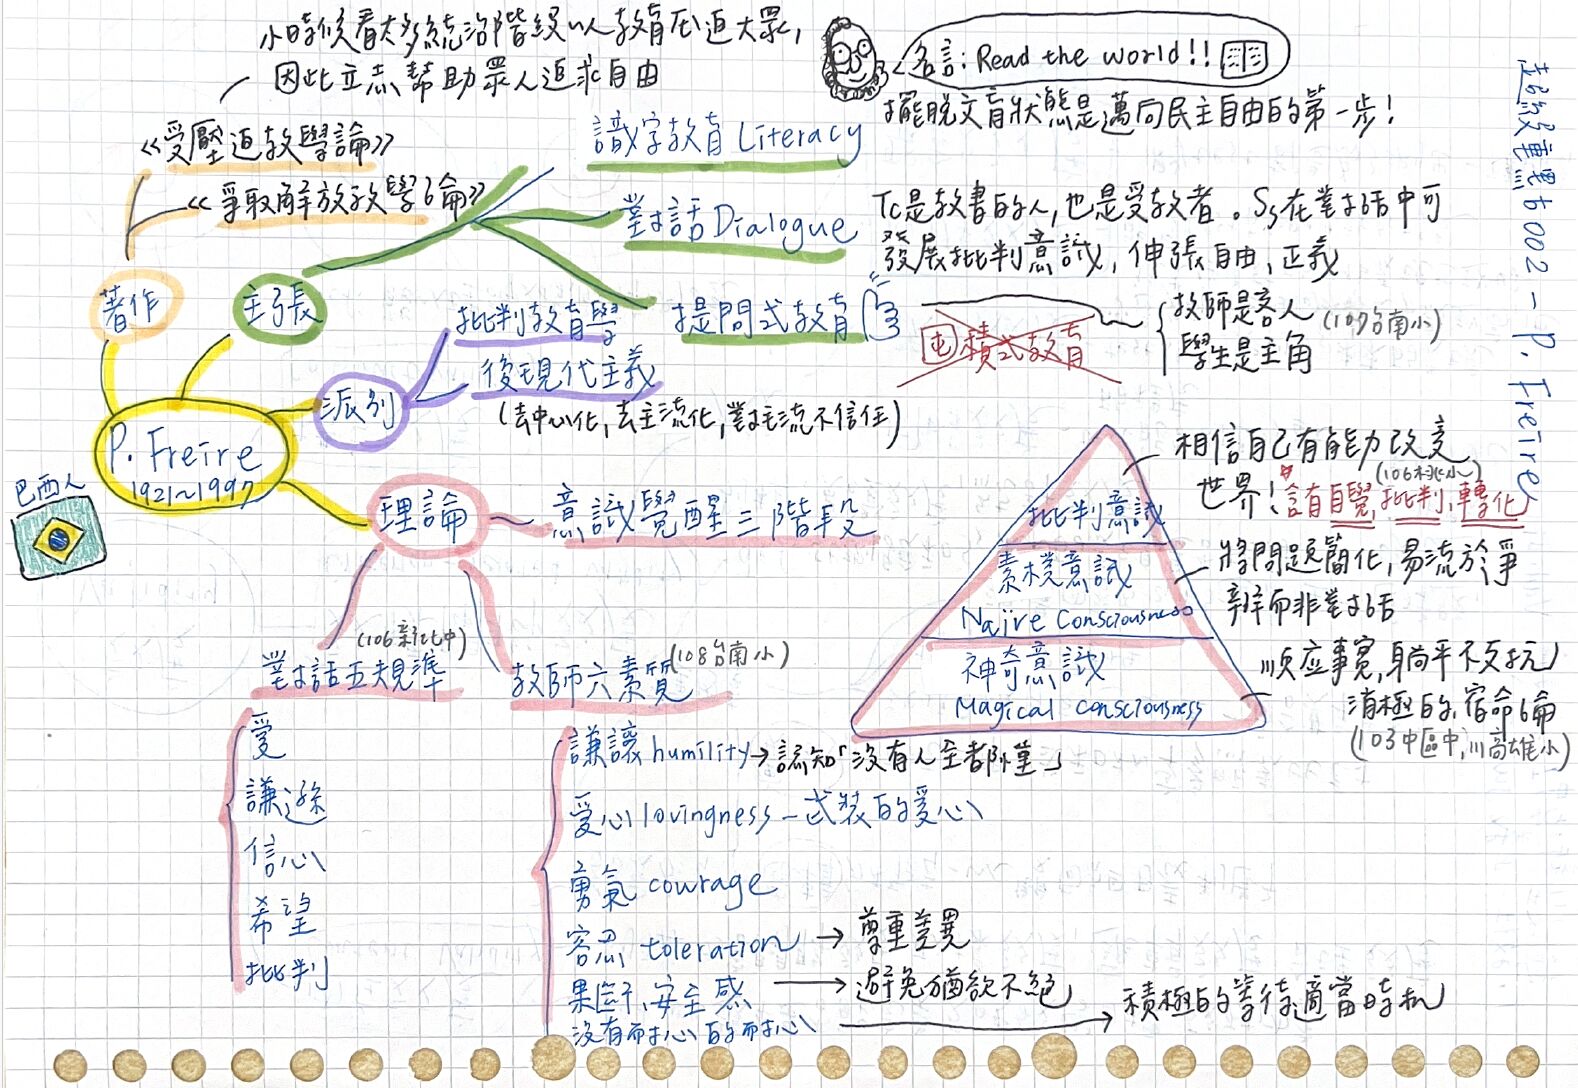 小時候看太多統治階級以教育压迫大眾,
因此立志幫助眾人追求自由
名言: Read the world!!
擺脫文盲狀態是邁向民主自由的第一步!
超級重點 002 - P. Freire
《受壓迫教學論》
《爭取解放教學論》
著作
主張
識字教育 Literacy
對話 Dialogue
Tc是教書的人,也是受教者。Ss在對話中可
發展批判意識,伸張自由、正義
提問式教育
囤積式教育
教師是客人
(109台南小)
學生是主角
派別
批判教育學
後現代主義
(去中心化,去主流化,對主流不信任)
P. Freire
1921~1997
巴西人
理論
意識覺醒三階段
批判意識
相信自己有能力改变
世界!
(106桃小)
含有自覺,批判,轉化
素樸意識
Naive Consciousness
將問題簡化,易流於爭
辯而非對話
神奇意識
Magical consciousness
順应事實,躺平不反抗
消極的,宿命論
(103中區中,高雄小)
(106新北中)
對話五規準
愛
謙遜
信心
希望
批判
(108台南小)
教師六素質
謙讓 humility→認知「沒有人全都懂」
愛心 lovingness - 武裝的愛心
勇氣 courage
容忍 toleration → 尊重差異
果断、安全感 → 避免猶欲不絕
沒有耐心的耐心 → 積極的等待適當時机